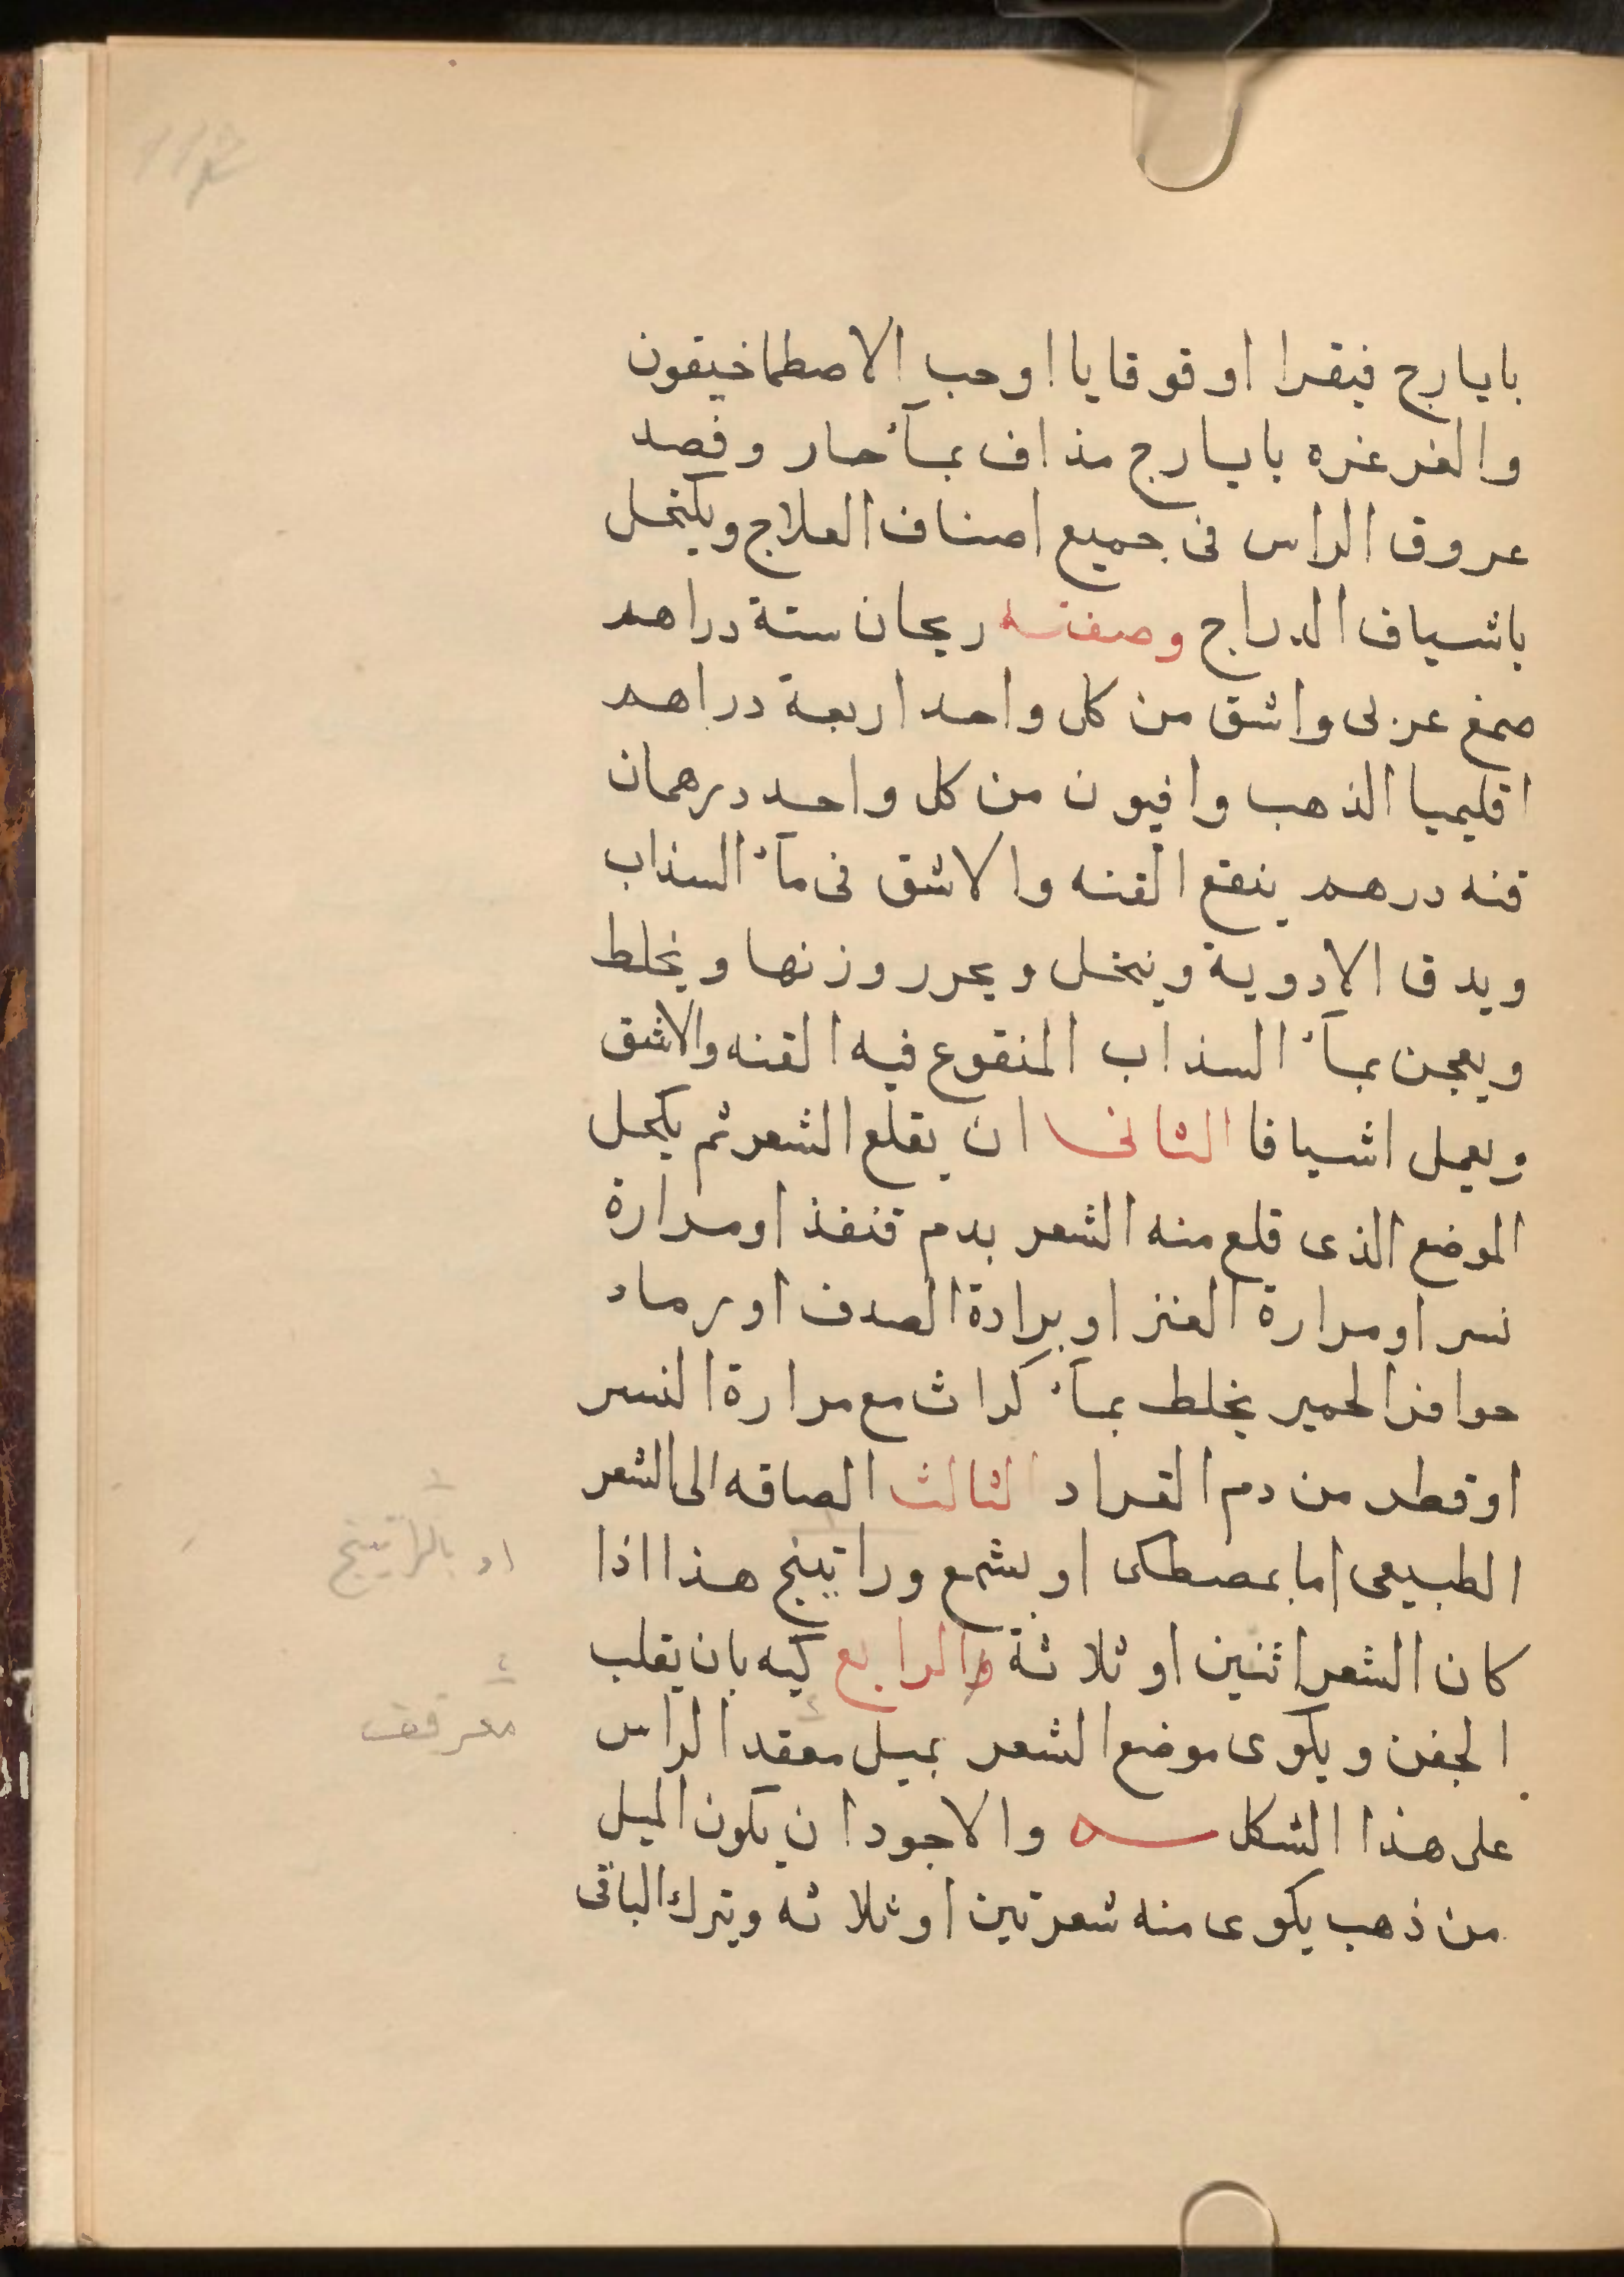 بايارج فيقرا او قوقايا او حب الاصطماخيقون
والغرغره بايارج مذاف بمآء حار وفصد
عروق الراس فى جميع اصناف العلاج ويكتحل
باشياف الدراج وصفته ريحان ستة دراهم
صمغ عربى واشق من كل واحد اربعة دراهم
اقليميا الذهب وافيون من كل واحد درهمان
قنه درهم ينقع القنه والاشق فى مآء السذاب
ويدق الادوية وينخل ويحرر وزنها ويخلط
ويعجن بمآء السذاب المنقوع فيه القنه والاشق
ويعمل اشيافا الثانى ان يقلع الشعر ثم يكحل
الموضع الذى قلع منه الشعر بدم قنفذ او مرارة
نسر او مرارة العنز او برادة الصدف او رماد
حوافر الحمير يخلط بمآء كراث مع مرارة النسر
او قطر من دم القراد الثالث الصاقه الى الشعر
الطبيعى اما بمصطكى او بشمع وراتينج هذا اذا
او بالراتينج
كان الشعر اثنين او ثلاثة والرابع كيه بان يقلب
الجفن ويكوى موضع الشعر بميل معقد الراس
معرقف
على هذا الشكل والاجود ان يكون الميل
من ذهب يكوى منه شعرتين او ثلاثه ويترك الباقى